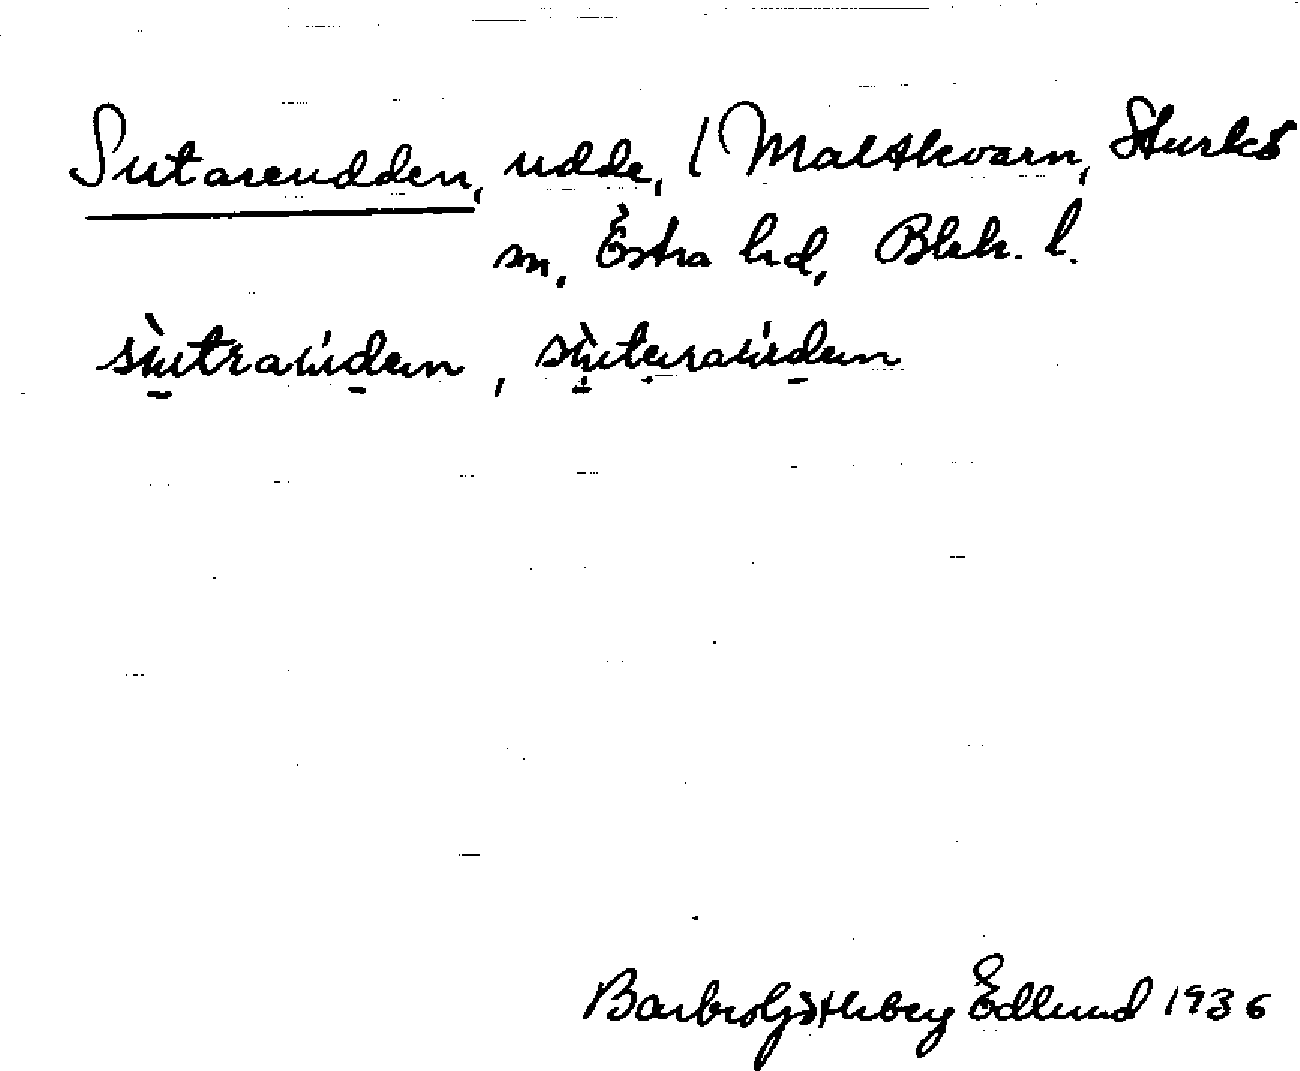 Sutareudden, udde, (Maltkvarn, Sturkö
sn, Östra hd, Blek. l.
sùtraúden, sùteraúden
Barbro Götheby Edlund 1936